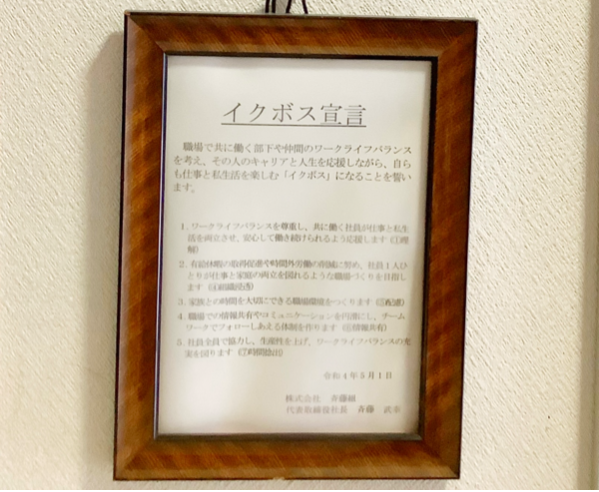 イクボス宣言
職場で共に働く部下や仲間のワークライフバランス
を考え、その人のキャリアと人生を応援しながら、自ら
も仕事と私生活を楽しむ「イクボス」になることを誓い
ます。
1. ワークライフバランスを尊重し、共に働く社員が仕事と私生
活を両立させ、安心して働き続けられるよう応援します（①理
解）
2. 有給休暇の取得促進や時間外労働の削減に努め、社員1人ひ
とりが仕事と家庭の両立を図れるような職場づくりを目指し
ます（④組織浸透）
3. 家族との時間を大切にできる職場環境をつくります（⑤配慮）
4. 職場での情報共有やコミュニケーションを円滑にし、チーム
ワークでフォローしあえる体制を作ります（③情報共有）
5. 社員全員で協力し、生産性を上げ、ワークライフバランスの充
実を図ります（⑦時間捻出）
令和4年5月1日
株式会社 斉藤組
代表取締役社長 斉藤